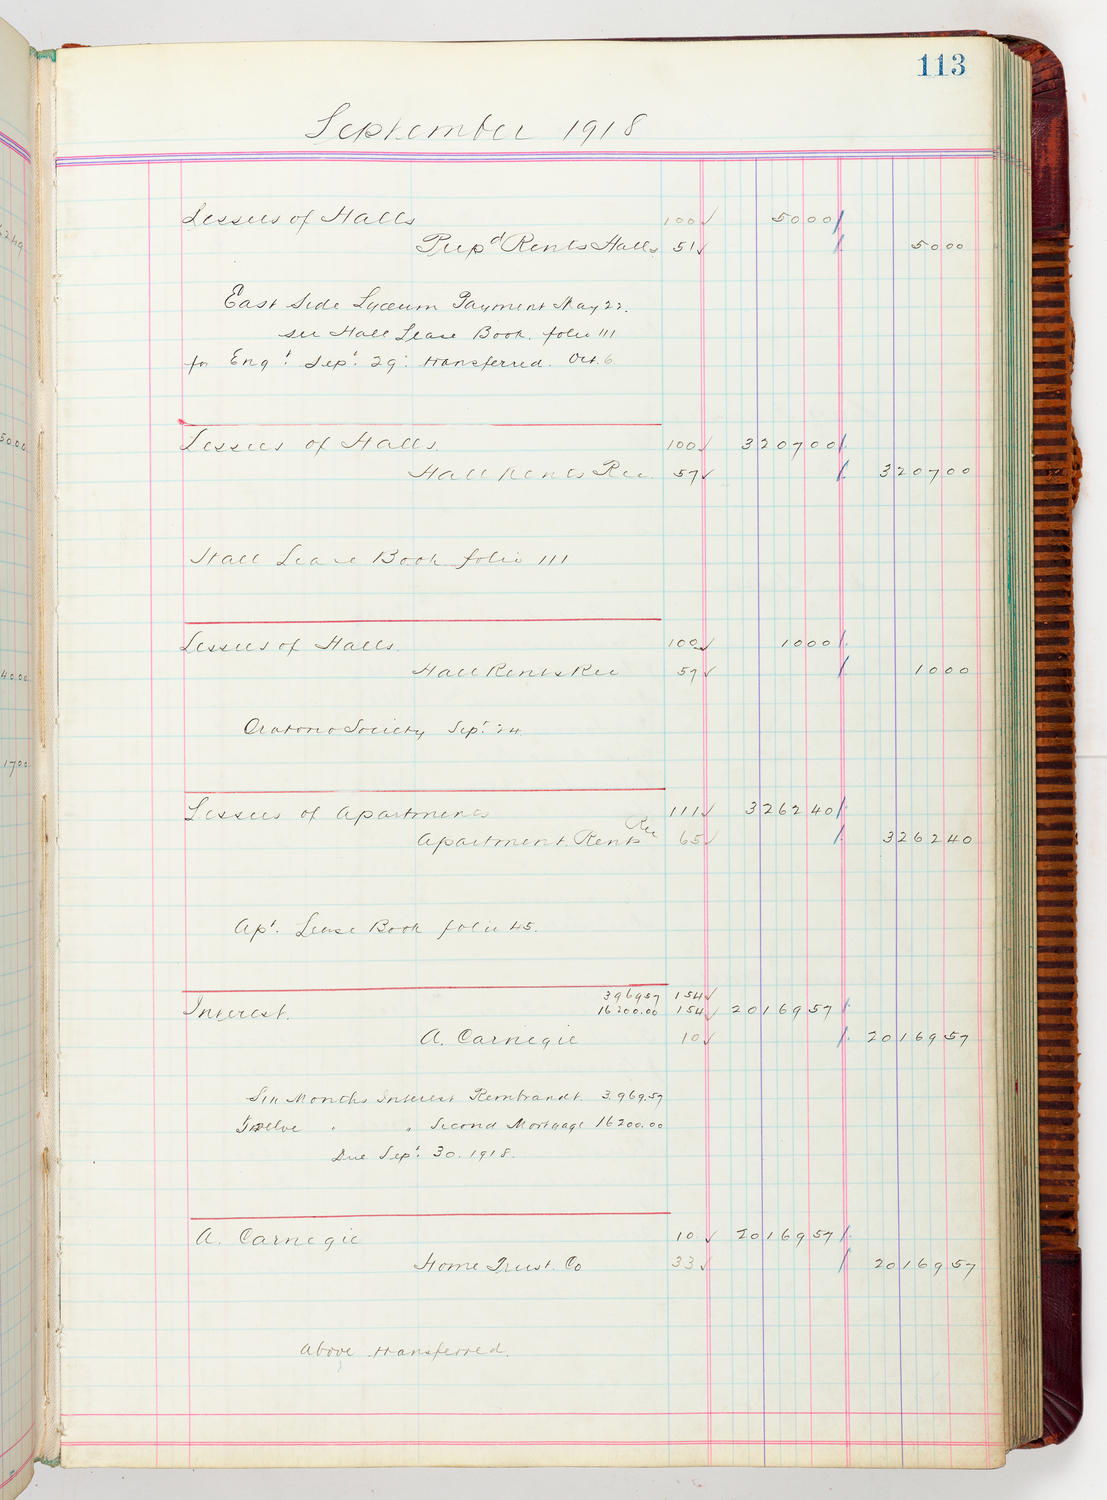 113
September 1918
Lessees of Halls 100 ✓ 5000
Prep'd Rents Halls 51 ✓ 5000
East Side Lyceum Payment May 22.
see Hall Lease Book. folio 111
for Eng't Sep't 29: transferred. Oct. 6
Lessees of Halls. 100 ✓ 320700
Hall Rents Rec. 57 ✓ 320700
Hall Lease Book folio 111
Lessees of Halls. 100 ✓ 1000
Hall Rents Rec 57 ✓ 1000
Oratorio Society Sep't 24.
Lessees of Apartments 111 ✓ 326240
Apartment Rents Rec 65 ✓ 326240
Ap't. Lease Book folio 45.
396957 154 ✓
Interest. 16200.00 154 ✓ 2016957
A. Carnegie 10 ✓ 2016957
Six Months Interest Rembrandt. 3.969.57
Twelve " " Second Mortgage 16200.00
Due Sep't 30. 1918.
A. Carnegie 10 ✓ 2016957
Home Trust. Co 33 ✓ 2016957
above transferred.
6249
50.00
40.00
17.00